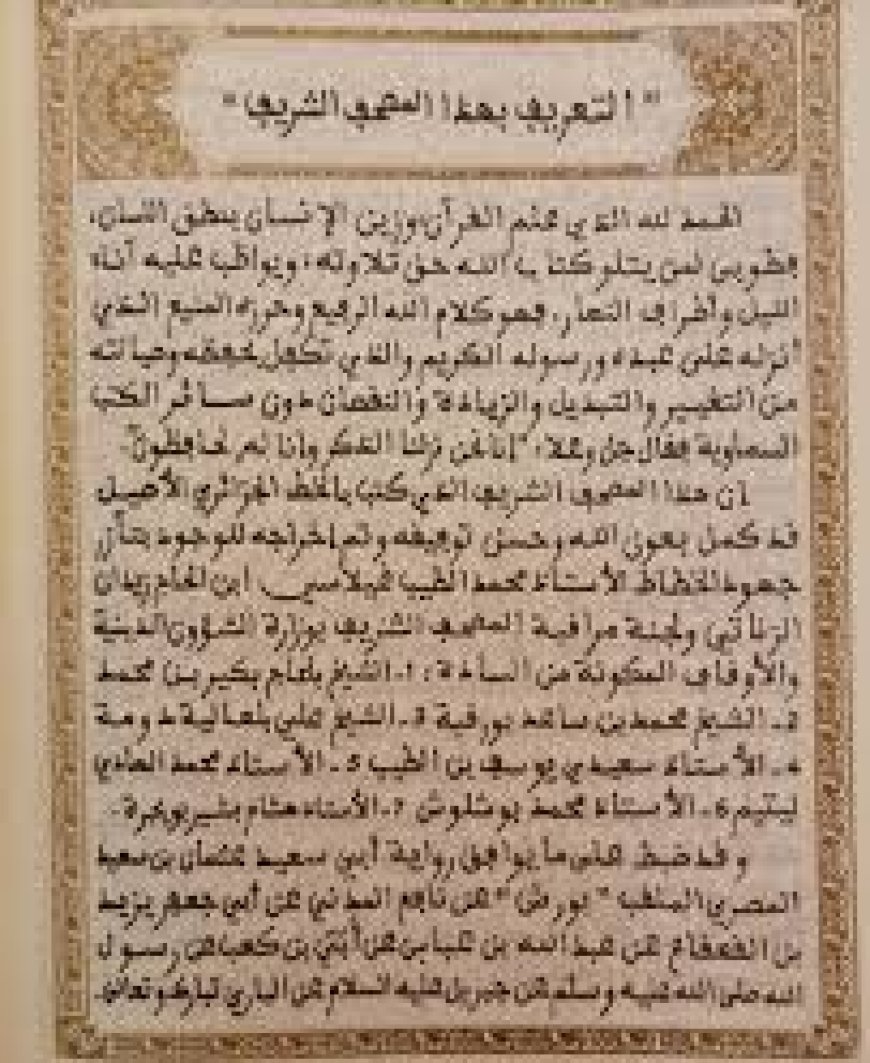 "التعريف بهذا المصحف الشريف"
الحمد لله الذي علم القرآن وزين الإنسان بنطق اللسان،
فطوبى لمن يتلو كتاب الله حق تلاوته، ويواظب عليه آناء
الليل وأطراف النهار، فهو كلام الله الرفيع وحرزه المنيع الذي
أنزله على عبده ورسوله الكريم والذي تكفل بحفظه وصيانته
من التغيير والتبديل والزيادة والنقصان دون سائر الكتب
السماوية فقال جل وعلا: "إنا نحن نزلنا الذكر وإنا له لحافظون".
إن هذا المصحف الشريف الذي كتب بالخط الجزائري الأصيل
قد كمل بعون الله وحسن توفيقه وتم إخراجه للوجود بتآزر
جهود الخطاط الأستاذ محمد الطيب ابن الحاج زيدان
الزناتي ولجنة مراقبة المصحف الشريف بوزارة الشؤون الدينية
والأوقاف المكونة من السادة: 1-الشيخ بلحاج بكير بن محمد
2- الشيخ محمد بن ساعد بورقبة 3- الشيخ علي بلعالية دومة
4- الأستاذ سعيدي يوسف بن الطيب 5- الأستاذ محمد الهادي
6- الأستاذ محمد بوشلوش 7- الأستاذ هشام بشير
وقد ضبط على ما يوافق رواية أبي سعيد عثمان بن سعيد
المصري الملقب "بورش" عن نافع المدني عن أبي جعفر يزيد
بن القعقاع عن عبد الله بن عباس عن أبي بن كعب عن رسول
الله صلى الله عليه وسلم عن جبريل عليه السلام عن الباري تبارك وتعالى.